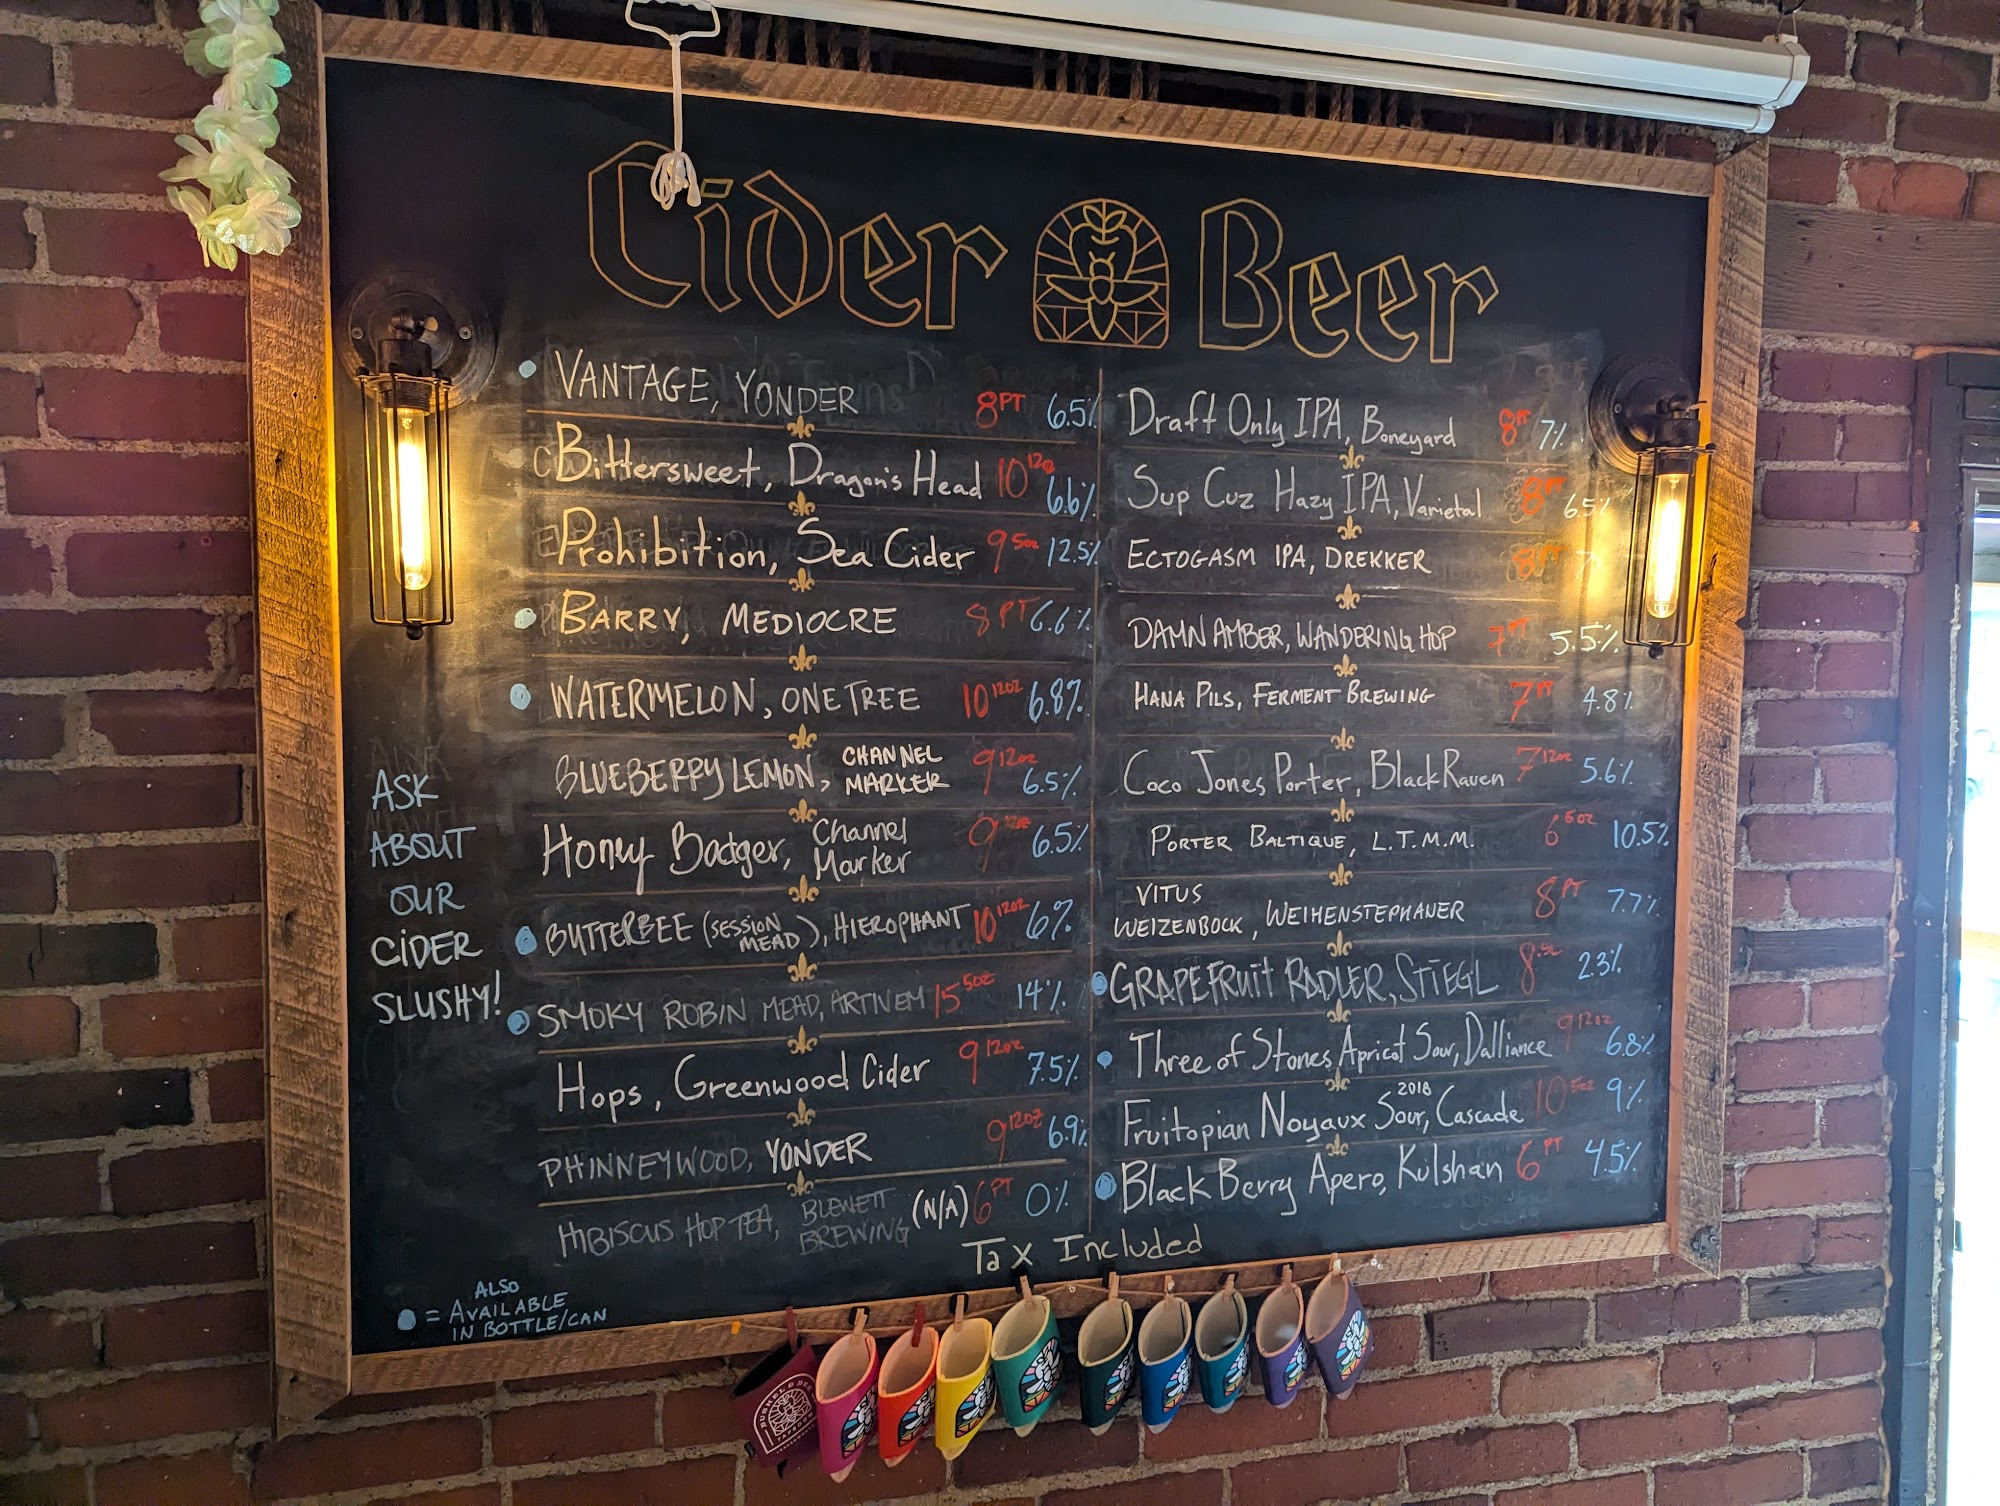 Cider Beer
VANTAGE, YONDER 8PT 6.5%
Bittersweet, Dragon's Head 10 12oz 6.6%
Prohibition, Sea Cider 9 5oz 12.5%
BARRY, MEDIOCRE 8 PT 6.6%
WATERMELON, ONE TREE 10 12oz 6.8%
BLUEBERRY LEMON, CHANNEL MARKER 9 12oz 6.5%
Honey Badger, Channel Marker 9 12oz 6.5%
BUTTERBEE (SESSION MEAD), HIEROPHANT 10 12oz 6%
SMOKY ROBIN MEAD, ARTIVEM 15 5oz 14%
Hops, Greenwood Cider 9 12oz 7.5%
PHINNEYWOOD, YONDER 9 12oz 6.9%
HIBISCUS HOP TEA, BLEWETT BREWING (N/A) 6 PT 0%
Draft Only IPA, Boneyard 8PT 7%
Sup Cuz Hazy IPA, Varietal 8PT 6.5%
ECTOGASM IPA, DREKKER 8PT
DAMN AMBER, WANDERING HOP 7PT 5.5%
HANA PILS, FERMENT BREWING 7PT 4.8%
Coco Jones Porter, Black Raven 7 12oz 5.6%
PORTER BALTIQUE, L.T.M.M. 6 5oz 10.5%
VITUS
WEIZENBOCK, WEIHENSTEPHANER 8PT 7.7%
GRAPEFRUIT RADLER, STIEGL 8 .5L 2.3%
Three of Stones Apricot Sour, Dalliance 9 12oz 6.8%
Fruitopian Noyaux 2018 Sour, Cascade 10 5oz 9%
Black Berry Apero, Kulshan 6 PT 4.5%
Tax Included
ASK
ABOUT
OUR
CIDER
SLUSHY!
ALSO
= AVAILABLE
IN BOTTLE/CAN
BUSHEL & BEE
TAPROOM